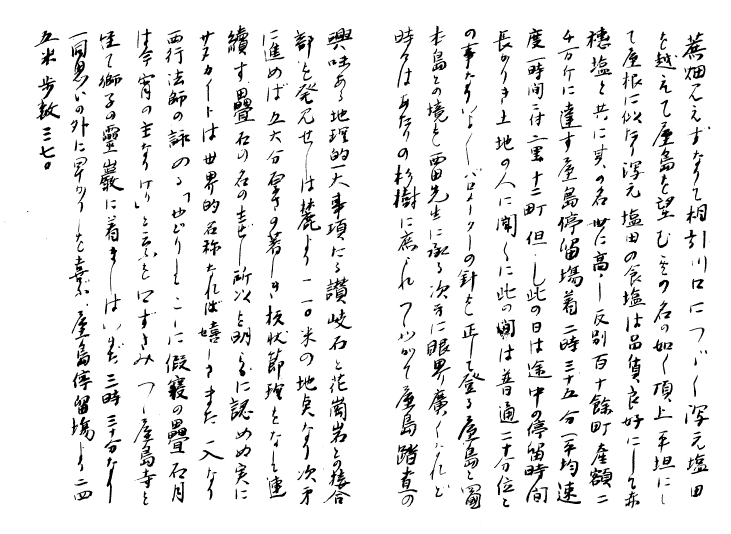 蕪畑见えずなりて相引川口につゞく潟元塩田
を越えて屋島を望む其の名の如く頂上平坦にし
て屋根に似たり潟元塩田の食塩は品質良好にして赤
穂塩と共に其の名世に高し反別百十餘町産額二
千万斤に達す屋島停留場着二時三十五分(平均速
度一時間二付二里十二町但し此の日は途中の停留時間
長かりき土地の人に聞くに此の間は普通二十分位と
の事なり)いよ〱バロメーターの針を正して登る屋島と
本島との境を西田先生に承る次才に眼界廣くなれど
時々はあたりの杉樹に庶られつゝやがて屋島踏査の
興味ある地理的一大事項たる讃岐石と花崗岩との接合
部を発見せしは麓より一一〇米の地点なり次才
に進めば五六分厚さの著しき板状節理をなし連
續す疊石の名の生ぜし所以も明らかに認めぬ実に
サヌカイトは世界的名称なれば嬉しさまた一入なり
西行法師の詠める「やどりしてこゝに假寝の疊石月
は今宵の主なりけり」と云ふを口ずさみつゝ屋島寺を
経て獅子の靈巖に着きしはいまだ三時三十分なり
一同思いの外に早かりしを喜ぶ、屋島停留場より二四
五米歩数三七〇